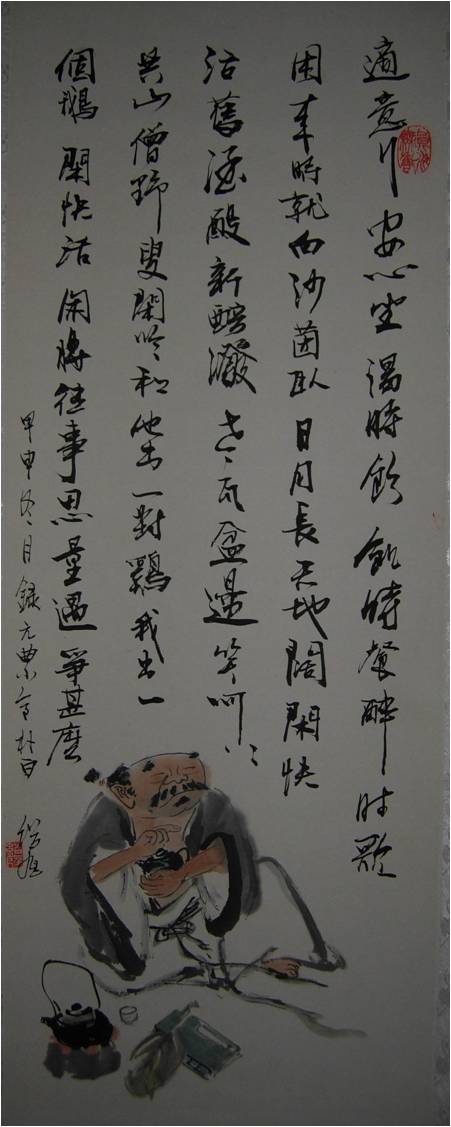 適意行安心坐渴時飲飢時餐醉時歌
困來時就向沙茵臥日月長天地闊閑快
活舊酒酘新醅潑老瓦盆邊笑呵〻
共山僧野叟閑吟和他出一對鷄我出一
個鵝閑快活閑將往事思量過爭甚麼
甲申冬月錄元曲